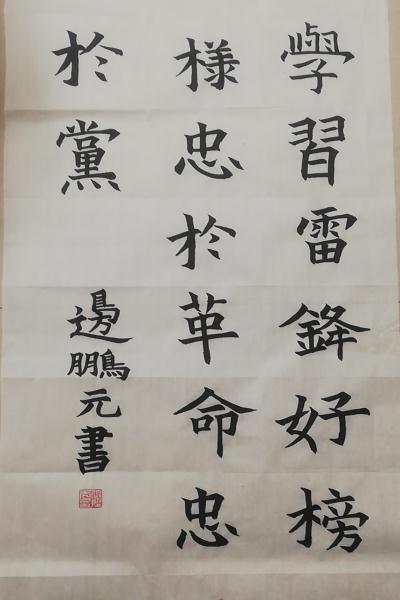 學習雷鋒好榜
様忠於革命忠
於黨
邊鵬元書